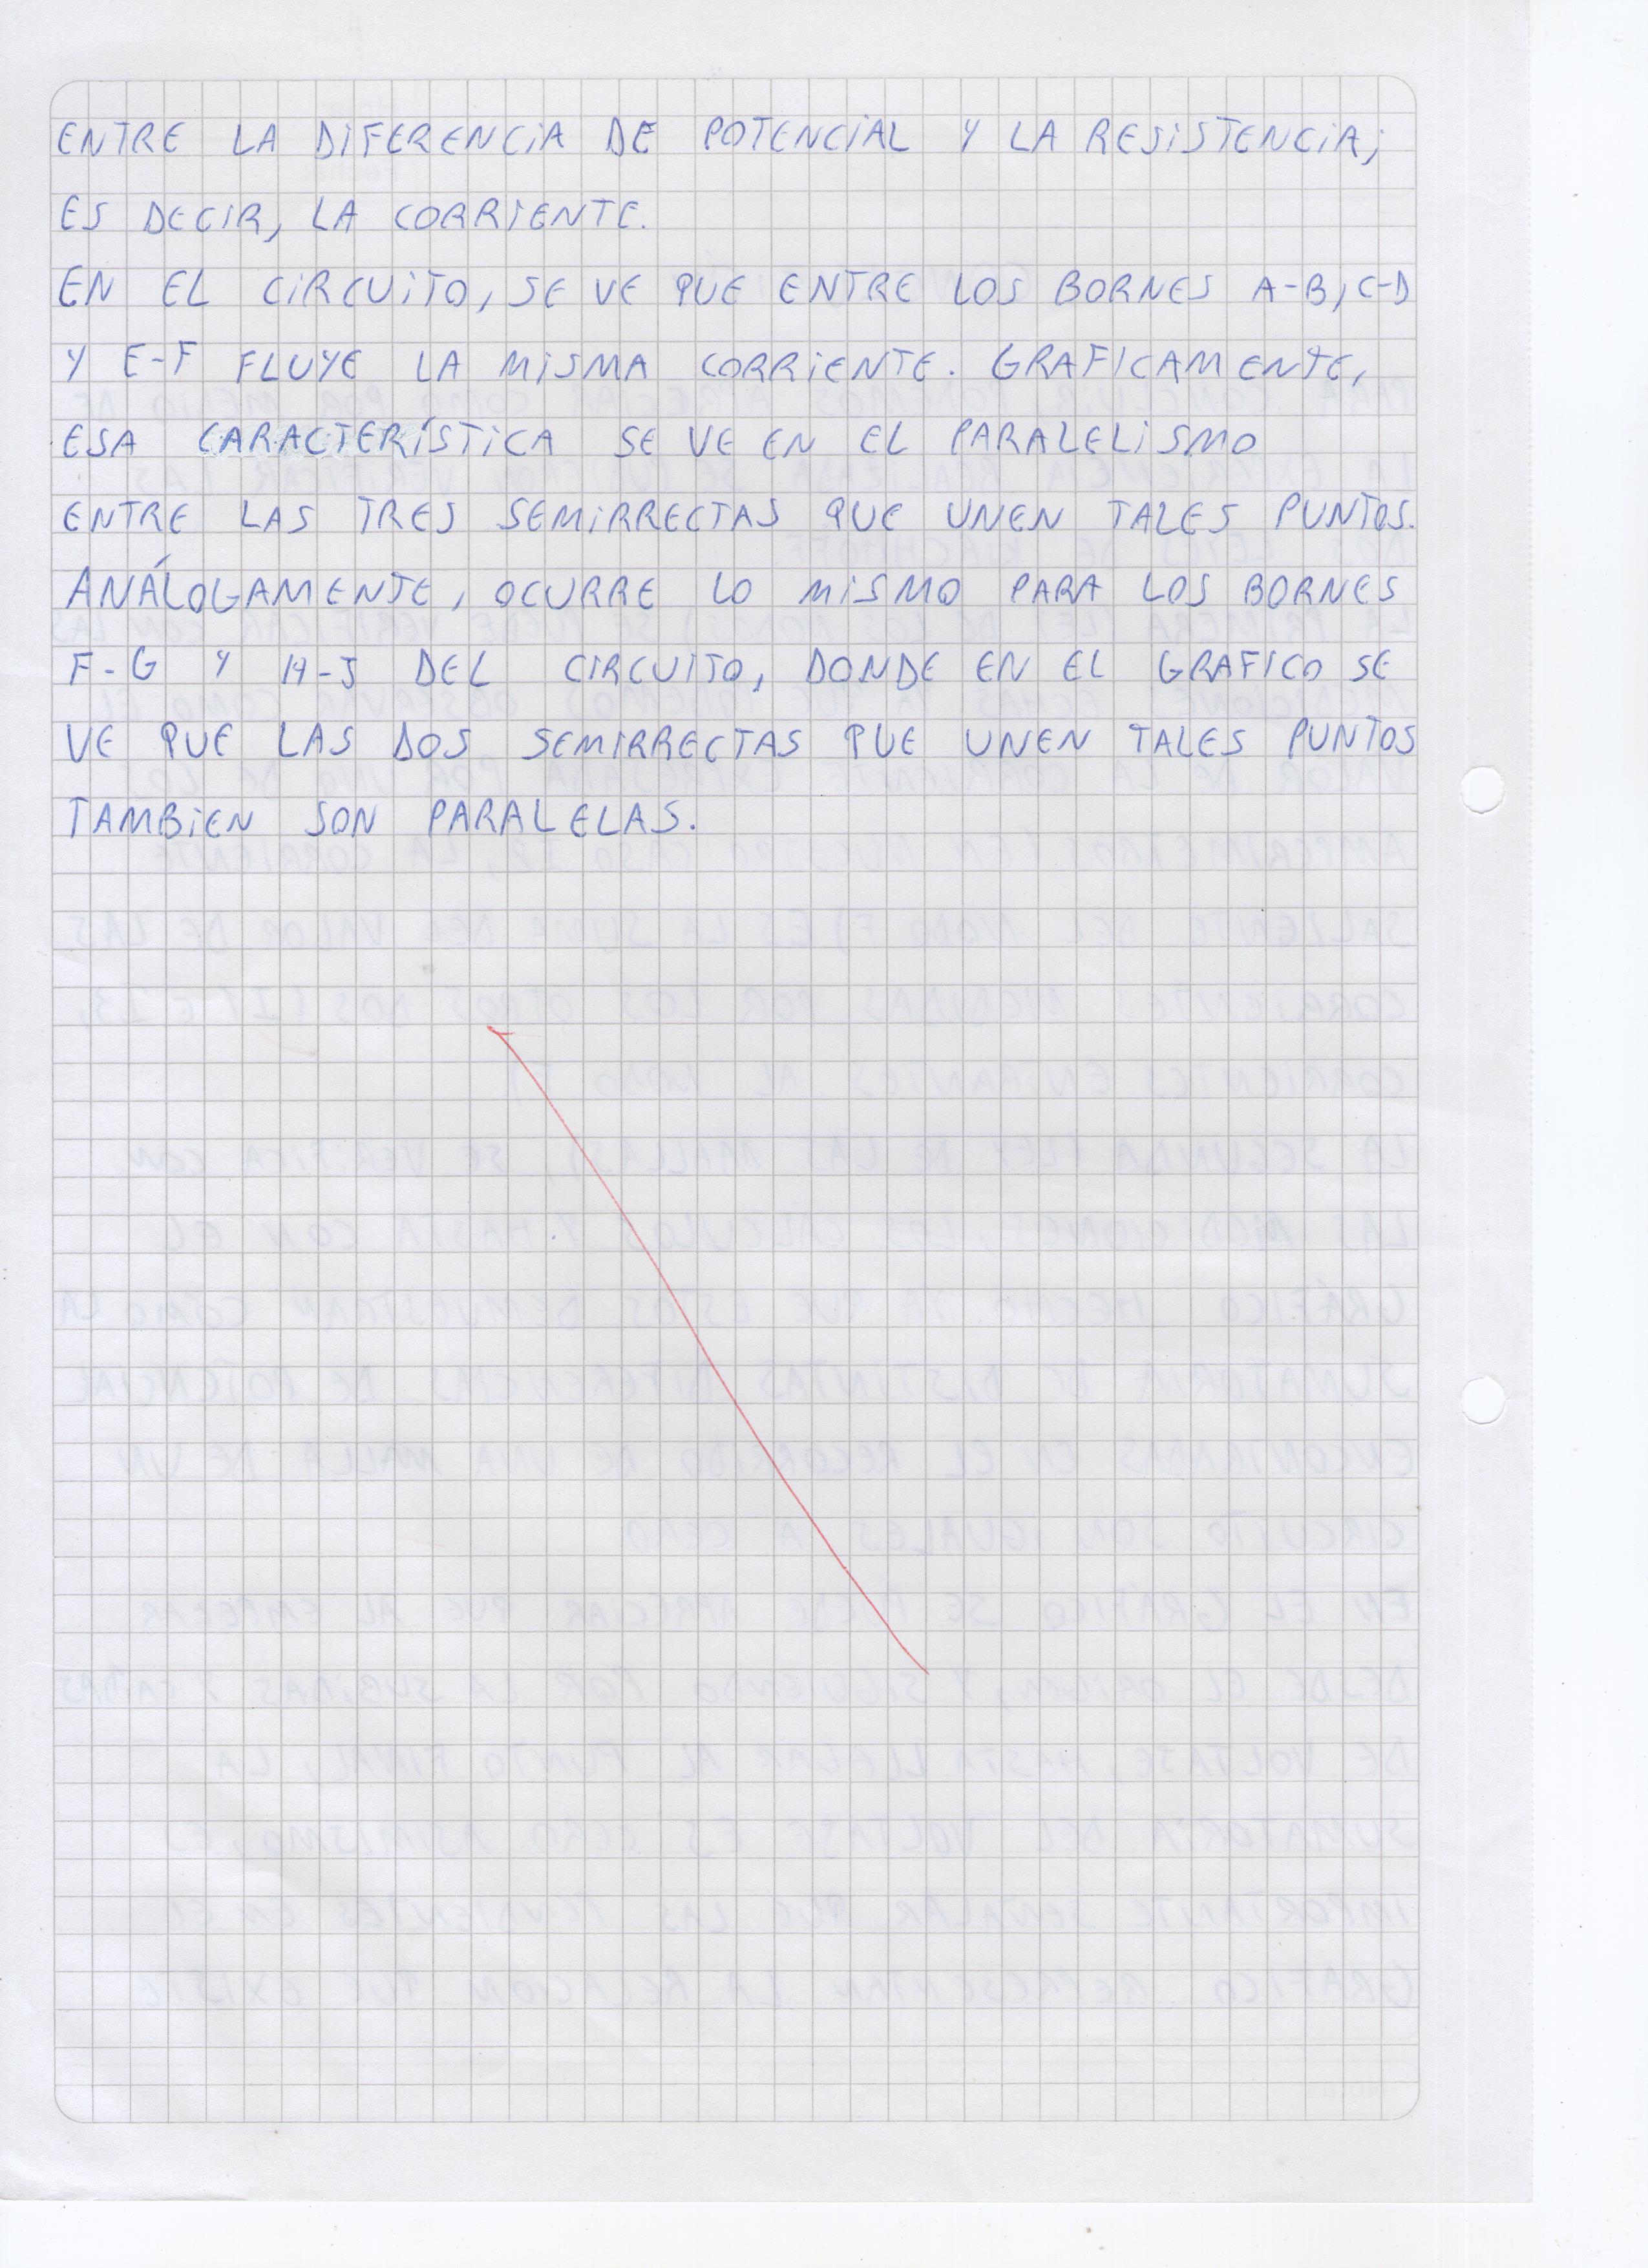 ENTRE LA DIFERENCIA DE POTENCIAL Y LA RESISTENCIA;
ES DECIR, LA CORRIENTE.
EN EL CIRCUITO, SE VE QUE ENTRE LOS BORNES A-B, C-D
Y E-F FLUYE LA MISMA CORRIENTE. GRAFICAMENTE,
ESA CARACTERÍSTICA SE VE EN EL PARALELISMO
ENTRE LAS TRES SEMIRRECTAS QUE UNEN TALES PUNTOS.
ANÁLOGAMENTE, OCURRE LO MISMO PARA LOS BORNES
F-G Y H-J DEL CIRCUITO, DONDE EN EL GRAFICO SE
VE QUE LAS DOS SEMIRRECTAS QUE UNEN TALES PUNTOS
TAMBIEN SON PARALELAS.